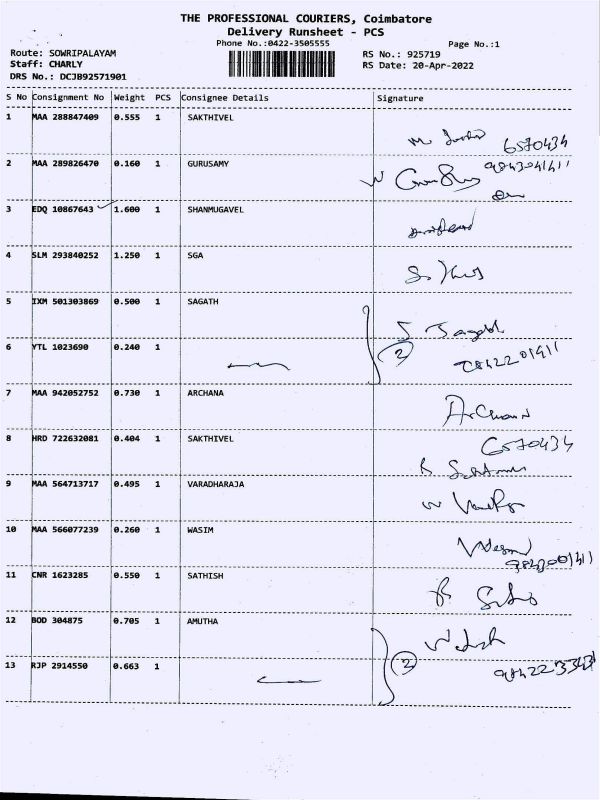 THE PROFESSIONAL COURIERS, Coimbatore
Delivery Runsheet - PCS
Phone No.:0422-3505555
Page No.:1
Route: SOWRIPALAYAM
RS No.: 925719
Staff: CHARLY
RS Date: 20-Apr-2022
DRS No.: DCJB92571901
S No Consignment No Weight PCS Consignee Details Signature
1 MAA 288847409 0.555 1 SAKTHIVEL
6570434
2 MAA 289826470 0.160 1 GURUSAMY
3 EDQ 10867643 1.600 1 SHANMUGAVEL
4 SLM 293840252 1.250 1 SGA
5 IXM 501303869 0.500 1 SAGATH
6 YTL 1023690 0.240 1
2
7 MAA 942052752 0.730 1 ARCHANA
Archana
8 HRD 722632081 0.404 1 SAKTHIVEL
6570434
9 MAA 564713717 0.495 1 VARADHARAJA
10 MAA 566077239 0.260 1 WASIM
11 CNR 1623285 0.550 1 SATHISH
12 BOD 304875 0.705 1 AMUTHA
13 RJP 2914550 0.663 1
2